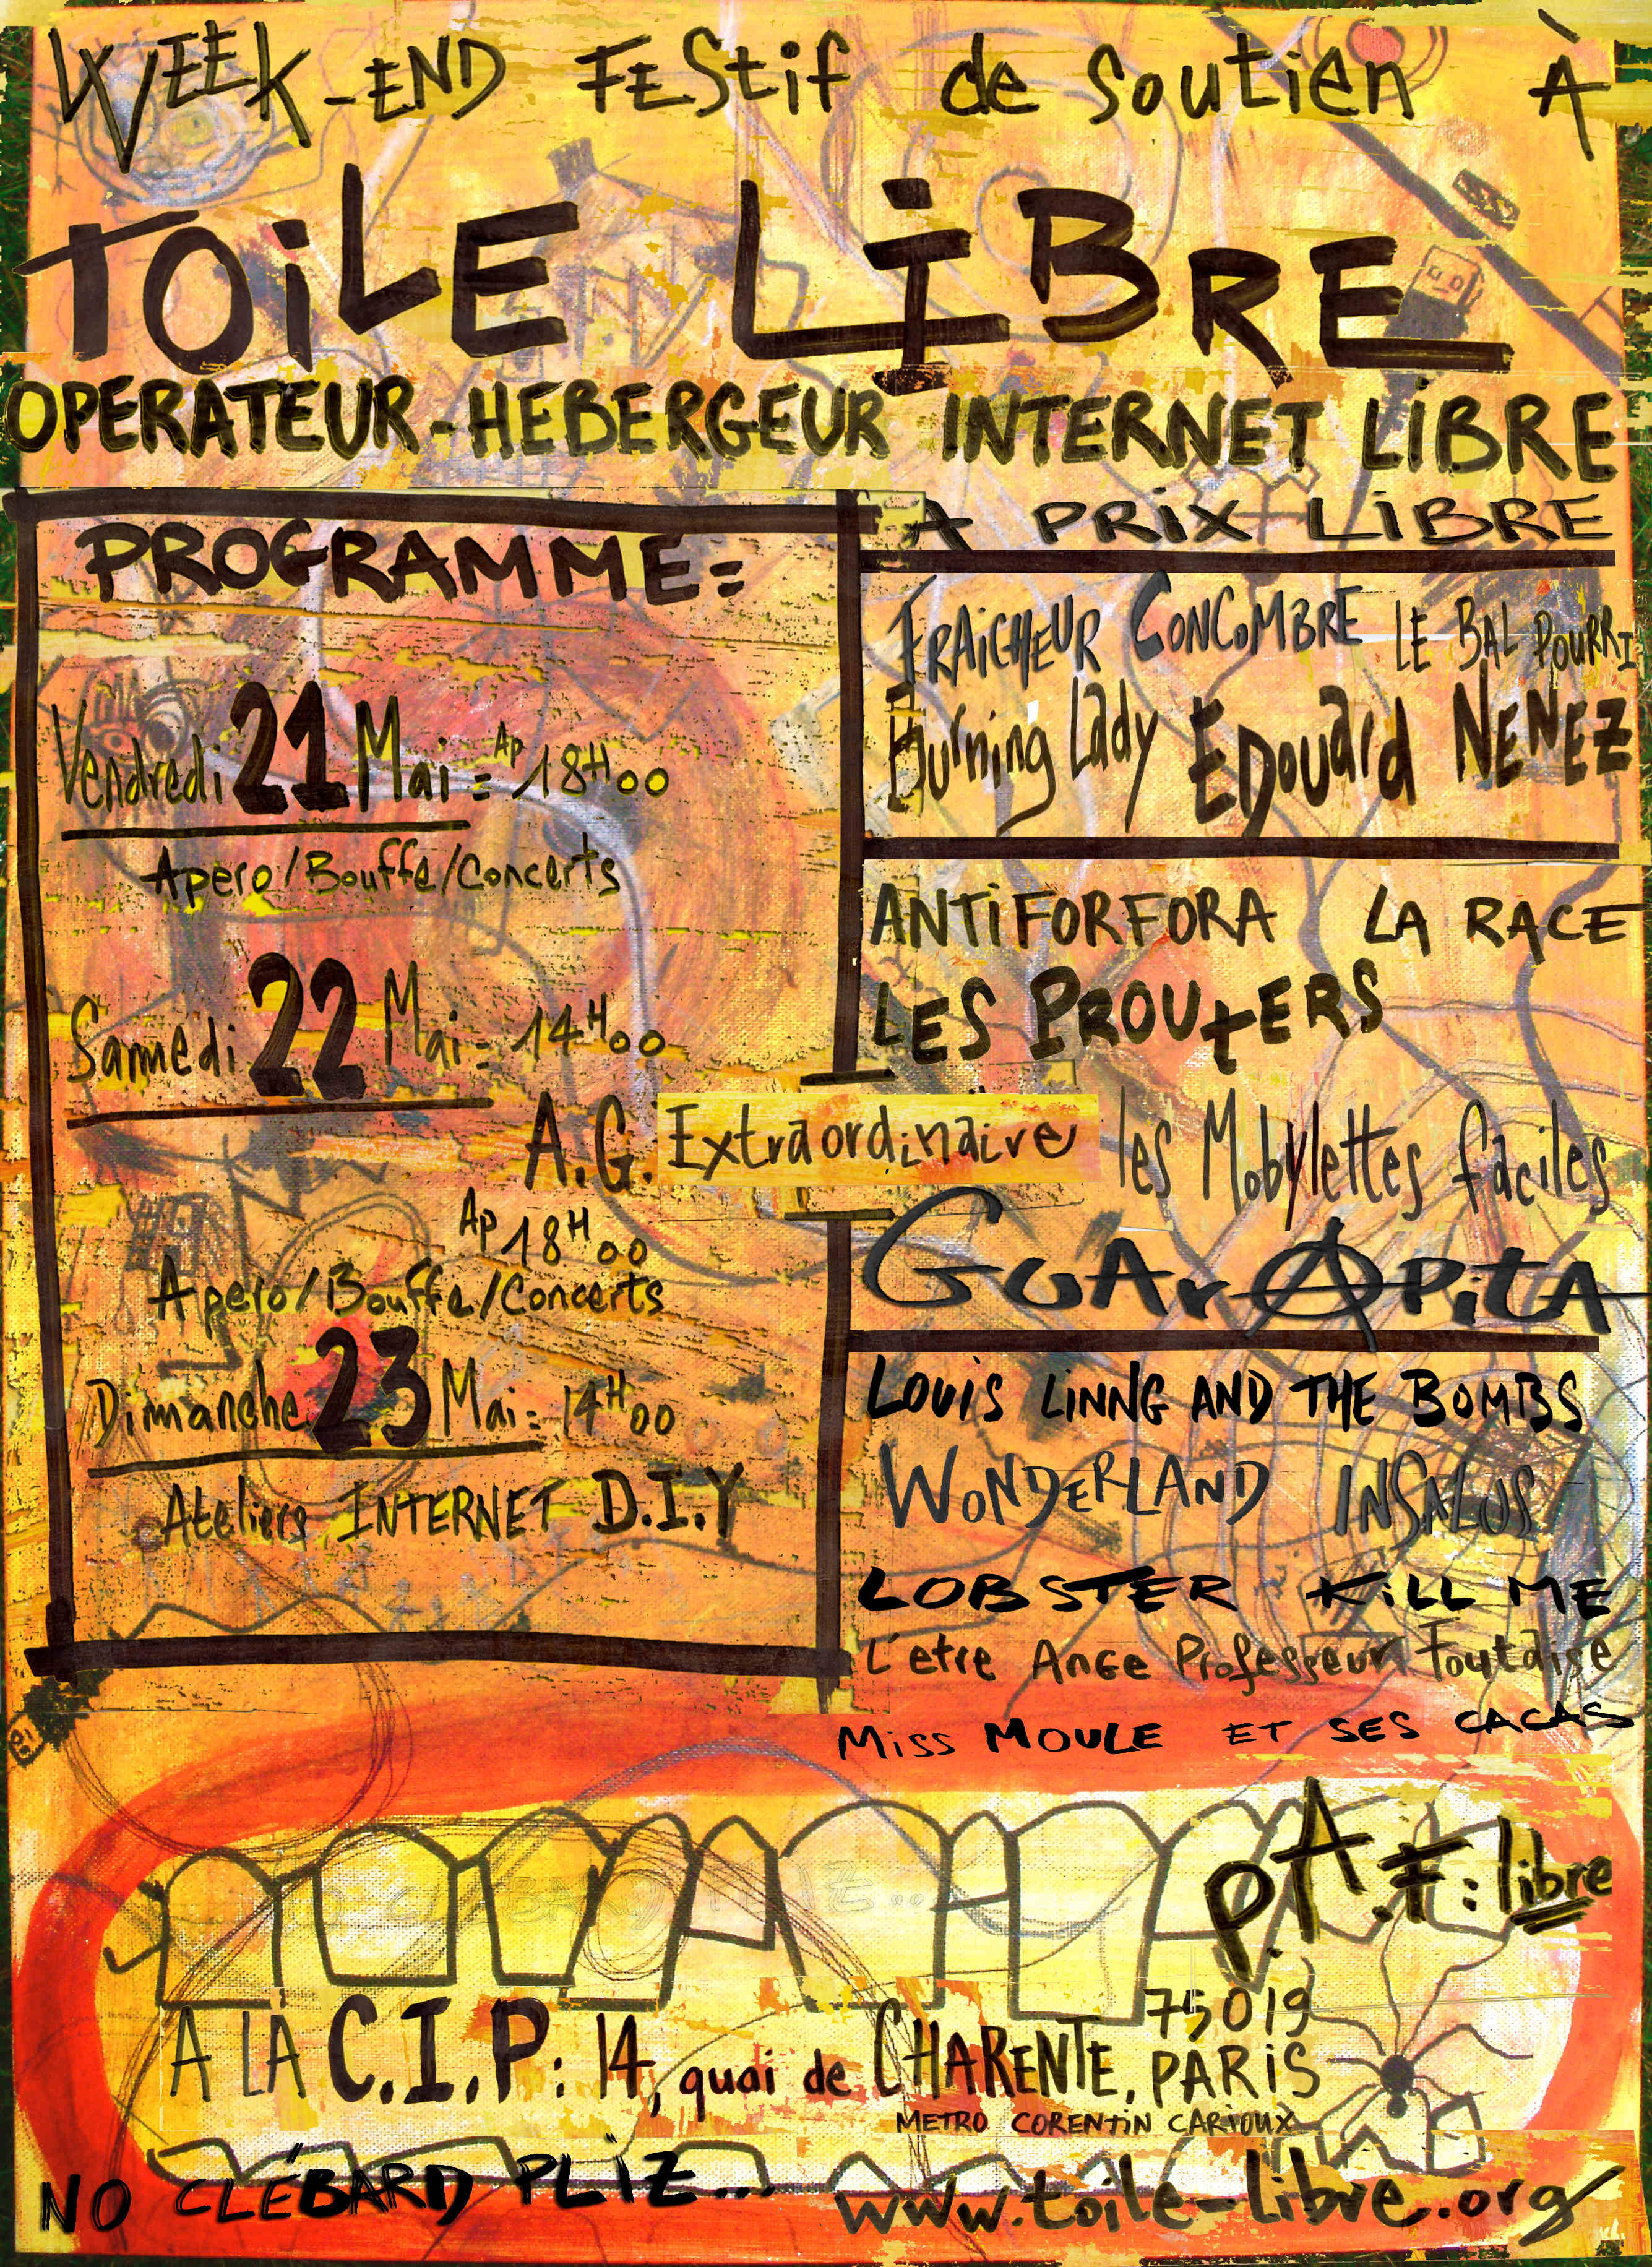 WEEK-END FEStif de soutien À
TOiLE LiBRE
OPERATEUR-HEBERGEUR INTERNET LiBRE
A PRiX LiBRE
PROGRAMME=
Vendredi 21 Mai = Ap 18H00
Apero/Bouffe/Concerts
Samedi 22 Mai = 14H00
A.G. Extraordinaire
Ap 18H00
Apero/Bouffe/Concerts
Dimanche 23 Mai = 14H00
Ateliers INTERNET D.I.Y
FRAiCHEUR CONCOMBRE LE BAL POURRI
Burning Lady EDouard NENEZ
ANTiFORFORA LA RACE
LES PROUtERS
les Mobylettes faciles
GuArAPitA
LOUiS LiNNG AND THE BOMBS
WONDERLAND INSALUS
LOBSTER KiLL ME
L'etre Ange Professeur Foutaise
Miss MOULE ET SES CACAS
PAF: libre
A LA C.I.P: 14, quai de CHARENTE, 75019 PARiS
METRO CORENTiN CARiOUX
NO CLÉBARD PLiZ...
www.toile-libre.org